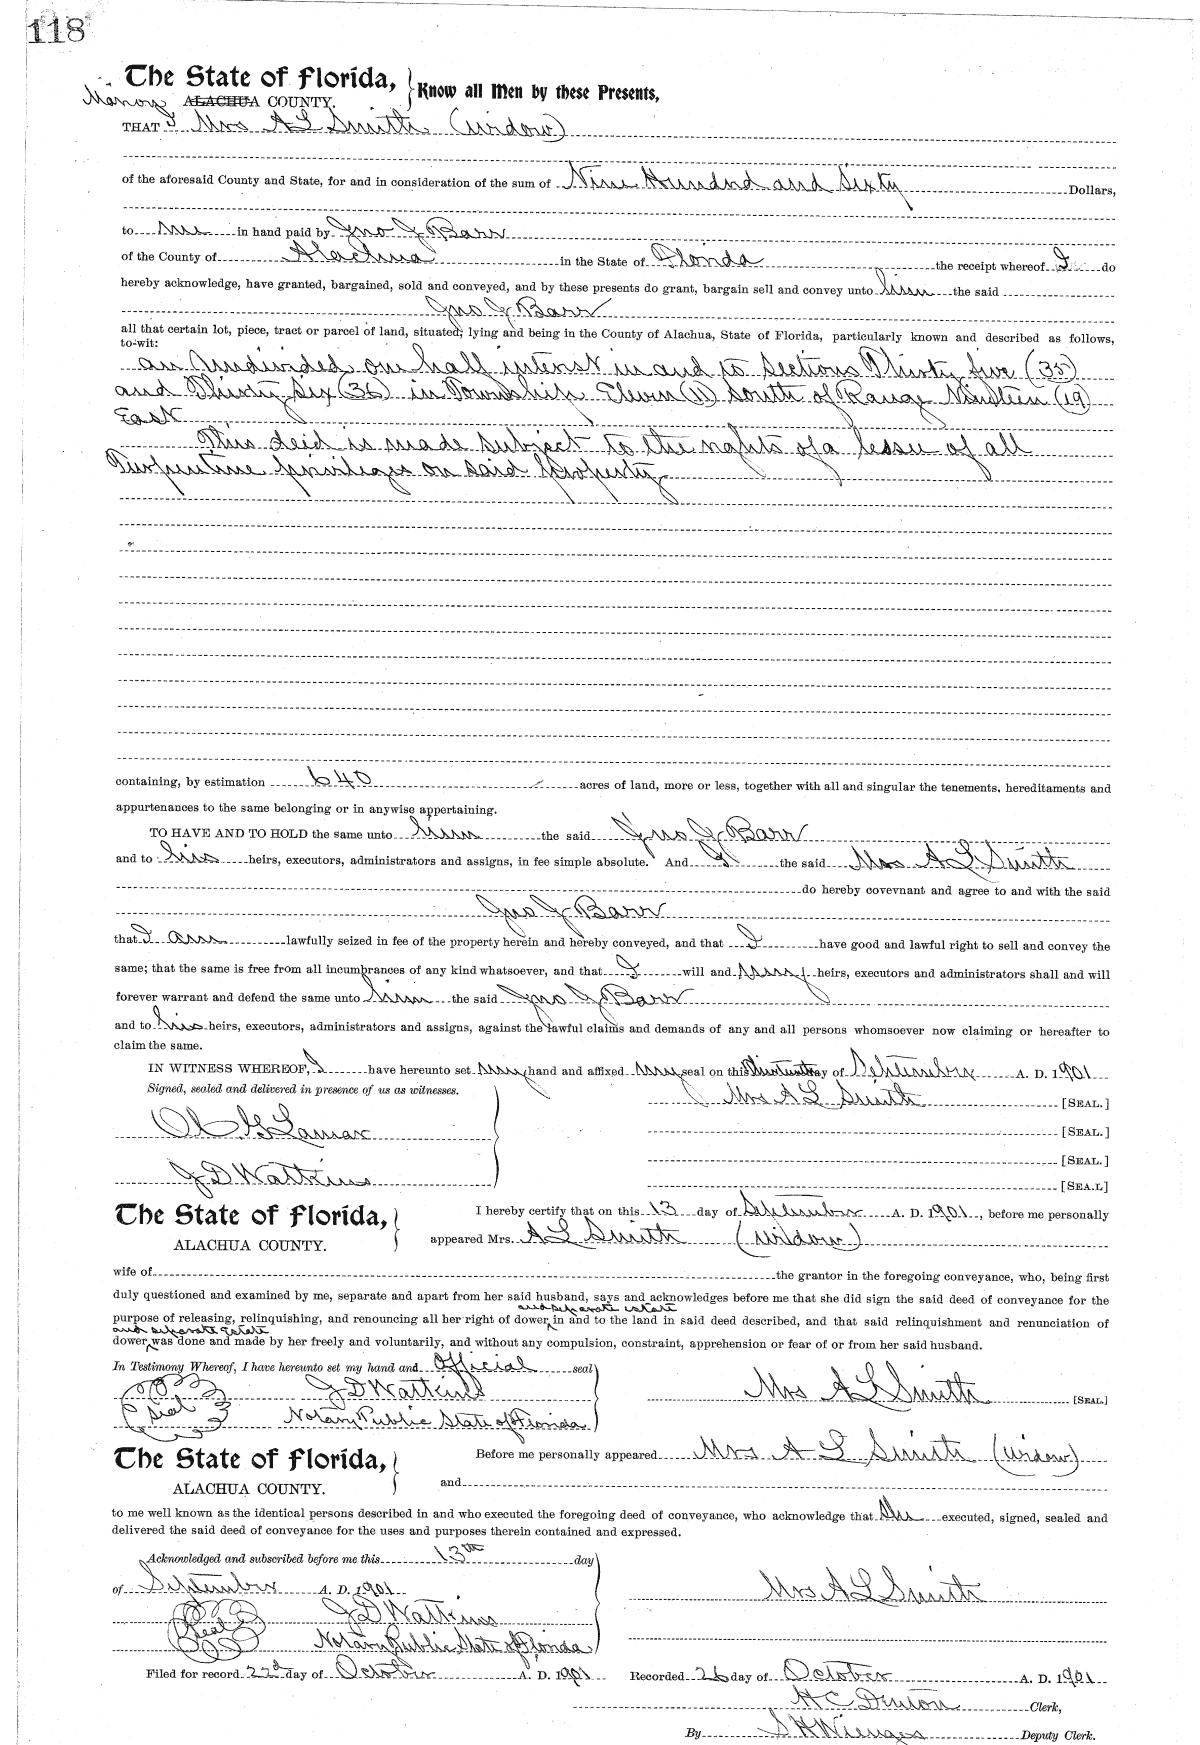 118
The State of Florida, Know all Men by these Presents,
Marion ALACHUA COUNTY.
THAT I Mrs A L Smith (widow)
of the aforesaid County and State, for and in consideration of the sum of Nine Hundred and Sixty Dollars,
to me in hand paid by Jno J Barr
of the County of Alachua in the State of Florida the receipt whereof I do
hereby acknowledge, have granted, bargained, sold and conveyed, and by these presents do grant, bargain sell and convey unto him the said
Jno J Barr
all that certain lot, piece, tract or parcel of land, situated, lying and being in the County of Alachua, State of Florida, particularly known and described as follows,
to-wit:
an Undivided one half interest in and to Sections Thirty five (35)
and Thirty Six (36) in Township Eleven (11) South of Range Nineteen (19)
East
This deed is made subject to the rights of a lessee of all
Turpentine privileges on said Property
containing, by estimation 640 acres of land, more or less, together with all and singular the tenements, hereditaments and
appurtenances to the same belonging or in anywise appertaining.
TO HAVE AND TO HOLD the same unto him the said Jno J Barr
and to his heirs, executors, administrators and assigns, in fee simple absolute. And I the said Mrs A L Smith
do hereby covevnant and agree to and with the said
Jno J Barr
that I am lawfully seized in fee of the property herein and hereby conveyed, and that I have good and lawful right to sell and convey the
same; that the same is free from all incumbrances of any kind whatsoever, and that I will and my heirs, executors and administrators shall and will
forever warrant and defend the same unto him the said Jno J Barr
and to his heirs, executors, administrators and assigns, against the lawful claims and demands of any and all persons whomsoever now claiming or hereafter to
claim the same.
IN WITNESS WHEREOF, I have hereunto set my hand and affixed my seal on this thirteenth day of September A. D. 1901
Signed, sealed and delivered in presence of us as witnesses.
Mrs A L Smith [SEAL.]
G Lamar [SEAL.]
[SEAL.]
J D Watkins [SEA.L]
The State of Florida, I hereby certify that on this 13 day of September A. D. 1901, before me personally
ALACHUA COUNTY. appeared Mrs. A L Smith (widow)
wife of the grantor in the foregoing conveyance, who, being first
duly questioned and examined by me, separate and apart from her said husband, says and acknowledges before me that she did sign the said deed of conveyance for the
and separate estate
purpose of releasing, relinquishing, and renouncing all her right of dower in and to the land in said deed described, and that said relinquishment and renunciation of
and separate Estate
dower was done and made by her freely and voluntarily, and without any compulsion, constraint, apprehension or fear of or from her said husband.
In Testimony Whereof, I have hereunto set my hand and Official seal
J D Watkins Mrs A L Smith [SEAL.]
Seal Notary Public State of Florida
The State of Florida, Before me personally appeared Mrs A L Smith (widow)
ALACHUA COUNTY. and
to me well known as the identical persons described in and who executed the foregoing deed of conveyance, who acknowledge that she executed, signed, sealed and
delivered the said deed of conveyance for the uses and purposes therein contained and expressed.
Acknowledged and subscribed before me this 13th day
of September A. D. 1901 Mrs A L Smith
J D Watkins
Seal Notary Public State of Florida
Filed for record 22d day of October A. D. 1901 Recorded 26 day of October A. D. 1901
H C Denton Clerk,
By S H Wienges Deputy Clerk.